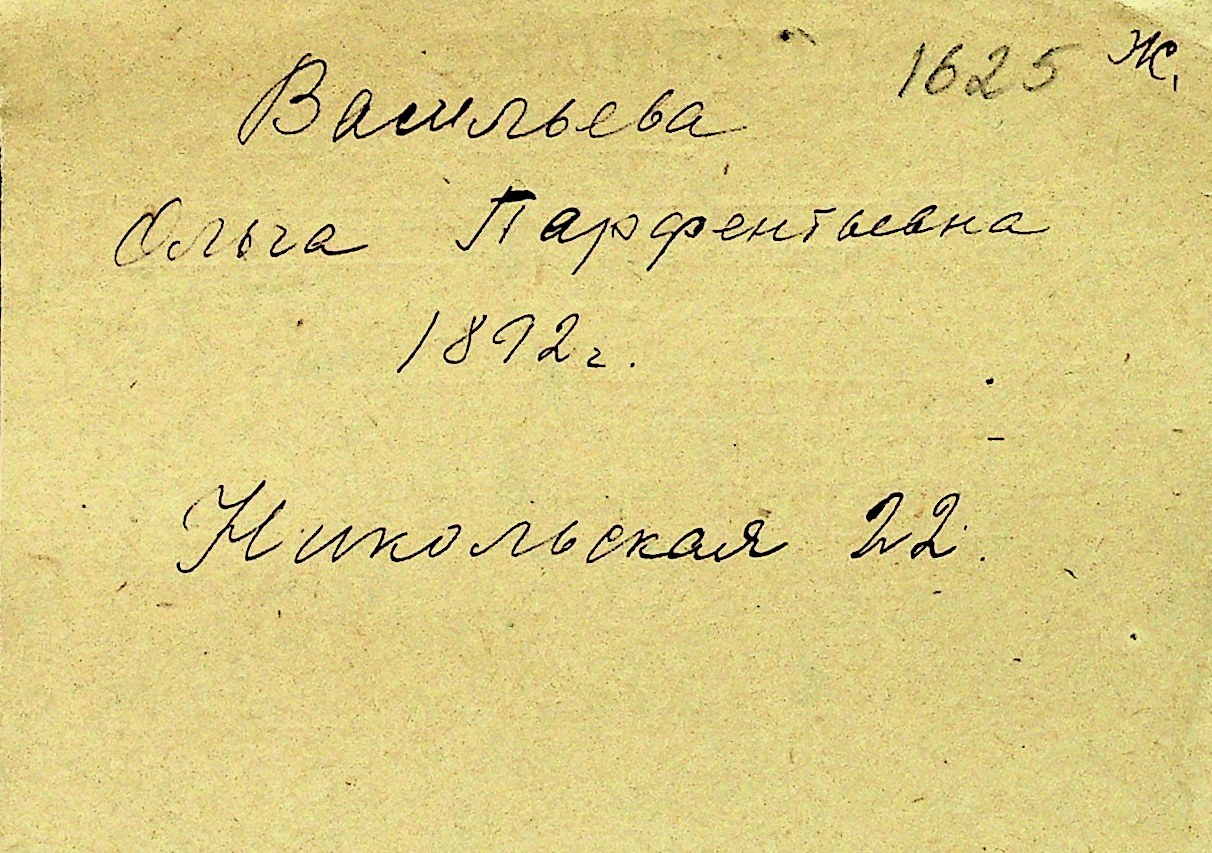 1625 Ж.
Васильева
Ольга Парфентьевна
1892 г.
Никольская 22.